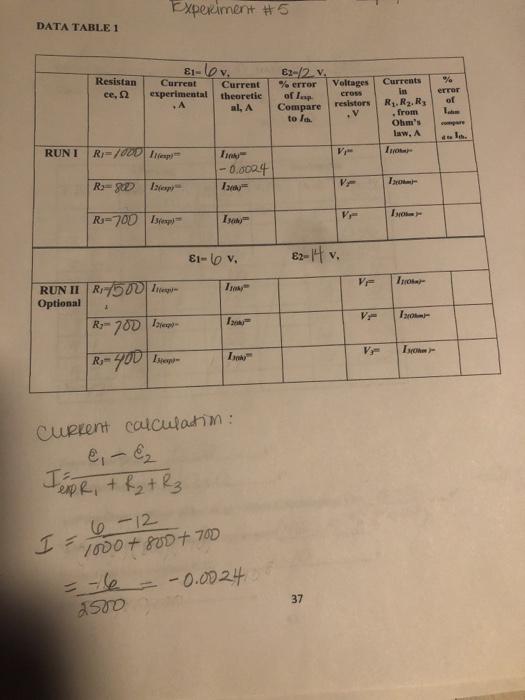 Experiment #5
DATA TABLE 1
ε1= 6 v, ε2=12 v,
Resistan ce, Ω
Current experimental , A
Current theoretic al, A
% error of Iexp. Compare to Ith.
Voltages cross resistors , V
Currents in R1, R2, R3 , from Ohm's law, A
% error of Iohm compare d to Ith.
RUN I R1=1000 I1(exp)= I1(th)= -0.0024 V1= I1(Ohm)=
R2= 800 I2(exp)= I2(th)= V2= I2(Ohm)=
R3=700 I3(exp)= I3(th)= V3= I3(Ohm)=
ε1= 6 v, ε2=14 v,
RUN II Optional R1=1500 I1(exp)= I1(th)= V1= I1(Ohm)=
R2= 700 I2(exp)= I2(th)= V2= I2(Ohm)=
R3= 400 I3(exp)= I3(th)= V3= I3(Ohm)=
Current calculation:
ε1 - ε2
Iexp= R1 + R2 + R3
6 - 12
I = 1000 + 800 + 700
= -6 = -0.0024
2500
37